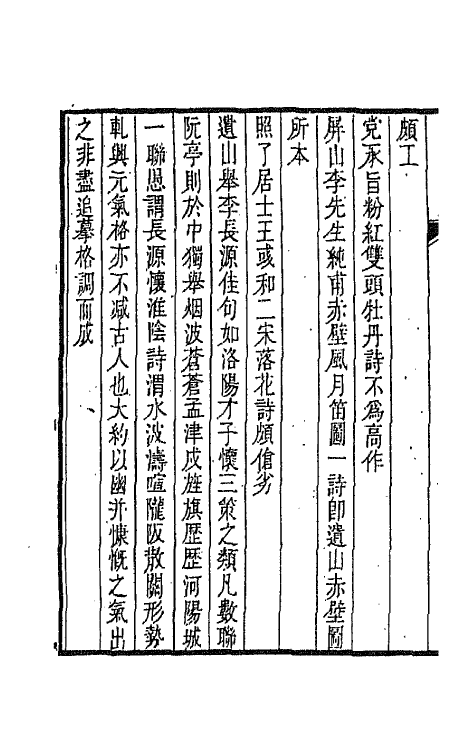 頗工
党承旨粉紅雙頭牡丹詩不爲高作
屏山李先生純甫赤壁風月笛圖一詩卽遺山赤壁圖
所本
照了居士王彧和二宋落花詩頗傖劣
遺山舉李長源佳句如洛陽才子懷三策之類凡數聯
阮亭則於中獨舉烟波蒼蒼孟津戍旌旗歷歷河陽城
一聯愚謂長源懷淮陰詩渭水波濤喧隴阪散關形勢
軋興元氣格亦不减古人也大約以幽并慷慨之氣出
之非盡追摹格調而成